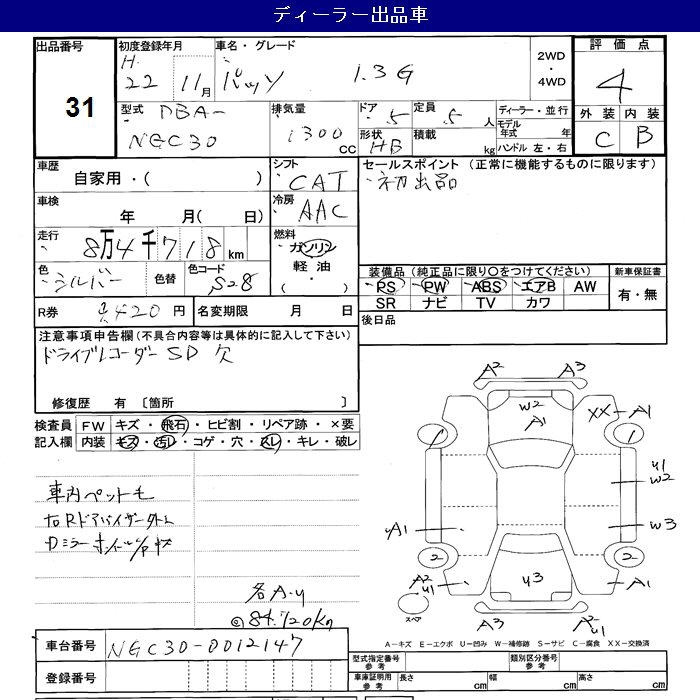 ディーラー出品車
出品番号
31
初度登録年月
H
22 11月
車名・グレード
パッソ 1.3G
2WD
・
4WD
評価点
4
外装 内装
C B
型式 DBA-
NGC30
排気量
1300cc
ドア 5
定員 5人
形状 HB
積載 kg
ディーラー・並行
モデル年式 年
ハンドル 左・右
車歴
自家用・( )
シフト
CAT
セールスポイント (正常に機能するものに限ります)
・初出品
車検
年 月( 日)
冷房
AAC
走行
8万4千718km
燃料
ガソリン
軽油
・
( )
色
シルバー
色替
色コード
S28
装備品(純正品に限り○をつけてください)
PS PW ABS エアB AW
SR ナビ TV カワ
新車保証書
有・無
R券 ¥420円
名変期限 月 日
後日品
注意事項申告欄(不具合内容等は具体的に記入して下さい)
ドライブレコーダー SD 欠
修復歴 有 〔箇所 〕
検査員
記入欄
FW キズ・飛石・ヒビ割・リペア跡・×要
内装 キズ・汚レ・コゲ・穴・スレ・キレ・破レ
車内ペット毛
右Rドアバイザー
Dミラー ホイル
各A・U
@84.720Km
A2 A3
W2
A1
XX A1
1 1
U1
W2
W3
A1
2 2
A2
U1
A1
U3
スペア
A3
A2
U1
A-キズ E-エクボ U-凹み W-補修跡 S-サビ C-腐食 XX-交換済
車台番号 NGC30-0012147
登録番号
型式指定番号
参考
類別区分番号
参考
車庫証明用
参考
長さ cm 幅 cm 高さ cm